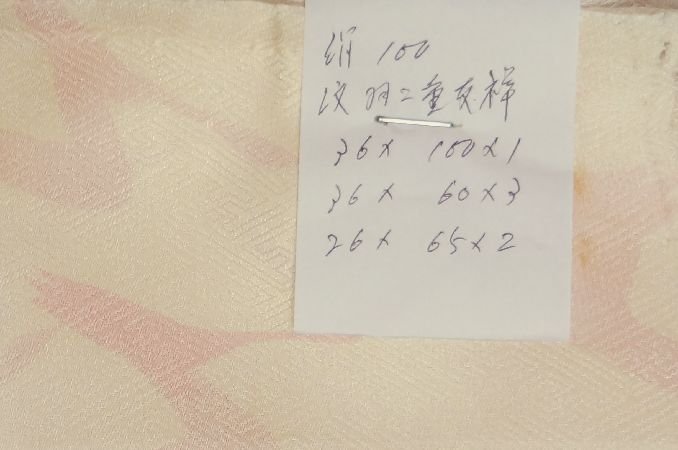 絹 100
紋羽二重友禅
36× 100×1
36× 60×3
26× 65×2